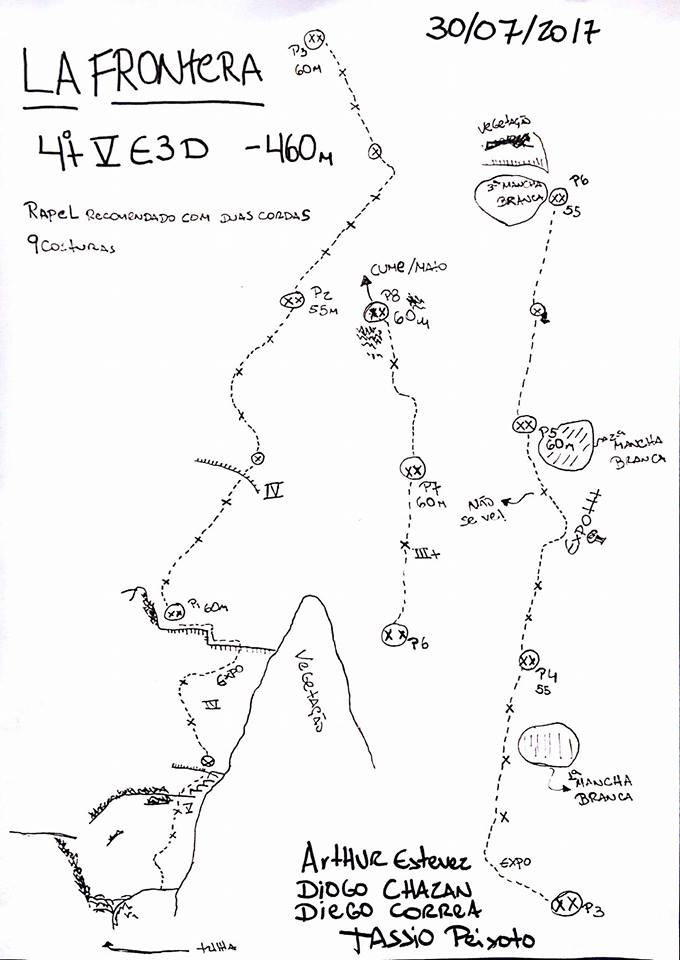 30/07/2017
LA FRONTERA
4º V E3 D -460M
RAPEL RECOMENDADO COM DUAS CORDAS
9 COSTURAS
P3
60M
P2
55M
IV
P1 60M
EXPO
IV
V
VEGETAÇÃO
TRILHA
CUME/MATO
P8
60M
P7
60M
III+
P6
VEGETAÇÃO
3ª MANCHA
BRANCA
P6
55
P5
60M
2ª
MANCHA
BRANCA
NÃO
SE VE!
EXPO
P4
55
1ª
MANCHA
BRANCA
EXPO
P3
ARTHUR Estevez
DIOGO CHAZAN
DIEGO CORREA
TASSIO PEIXOTO